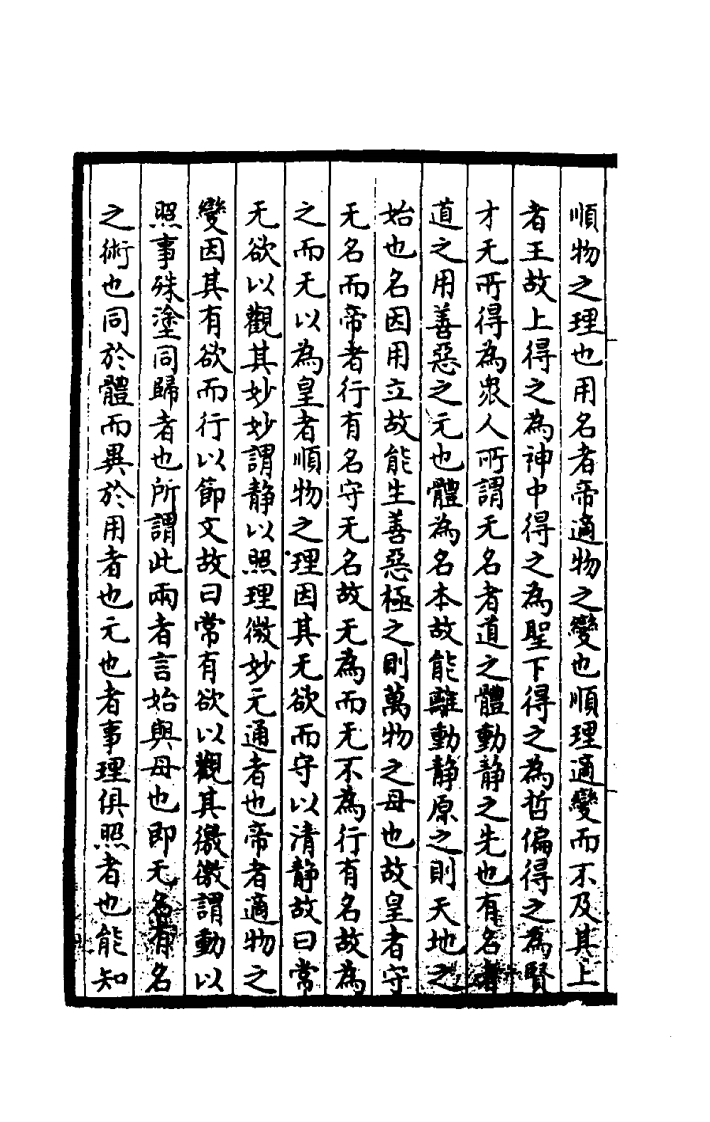 順物之理也用名者帝適物之變也順理適變而不及其上
者王故上得之為神中得之為聖下得之為哲偏得之為賢
才无所得為衆人所謂无名者道之體動静之先也有名者
道之用善惡之元也體為名本故能離動静原之則天地之
始也名因用立故能生善惡極之則萬物之母也故皇者守
无名而帝者行有名守无名故无為而无不為行有名故為
之而无以為皇者順物之理因其无欲而守以清静故曰常
无欲以觀其妙妙謂静以照理微妙元通者也帝者適物之
變因其有欲而行以節文故曰常有欲以觀其徼徼謂動以
照事殊塗同歸者也所謂此兩者言始與母也即无名有名
之術也同於體而異於用者也元也者事理俱照者也能知